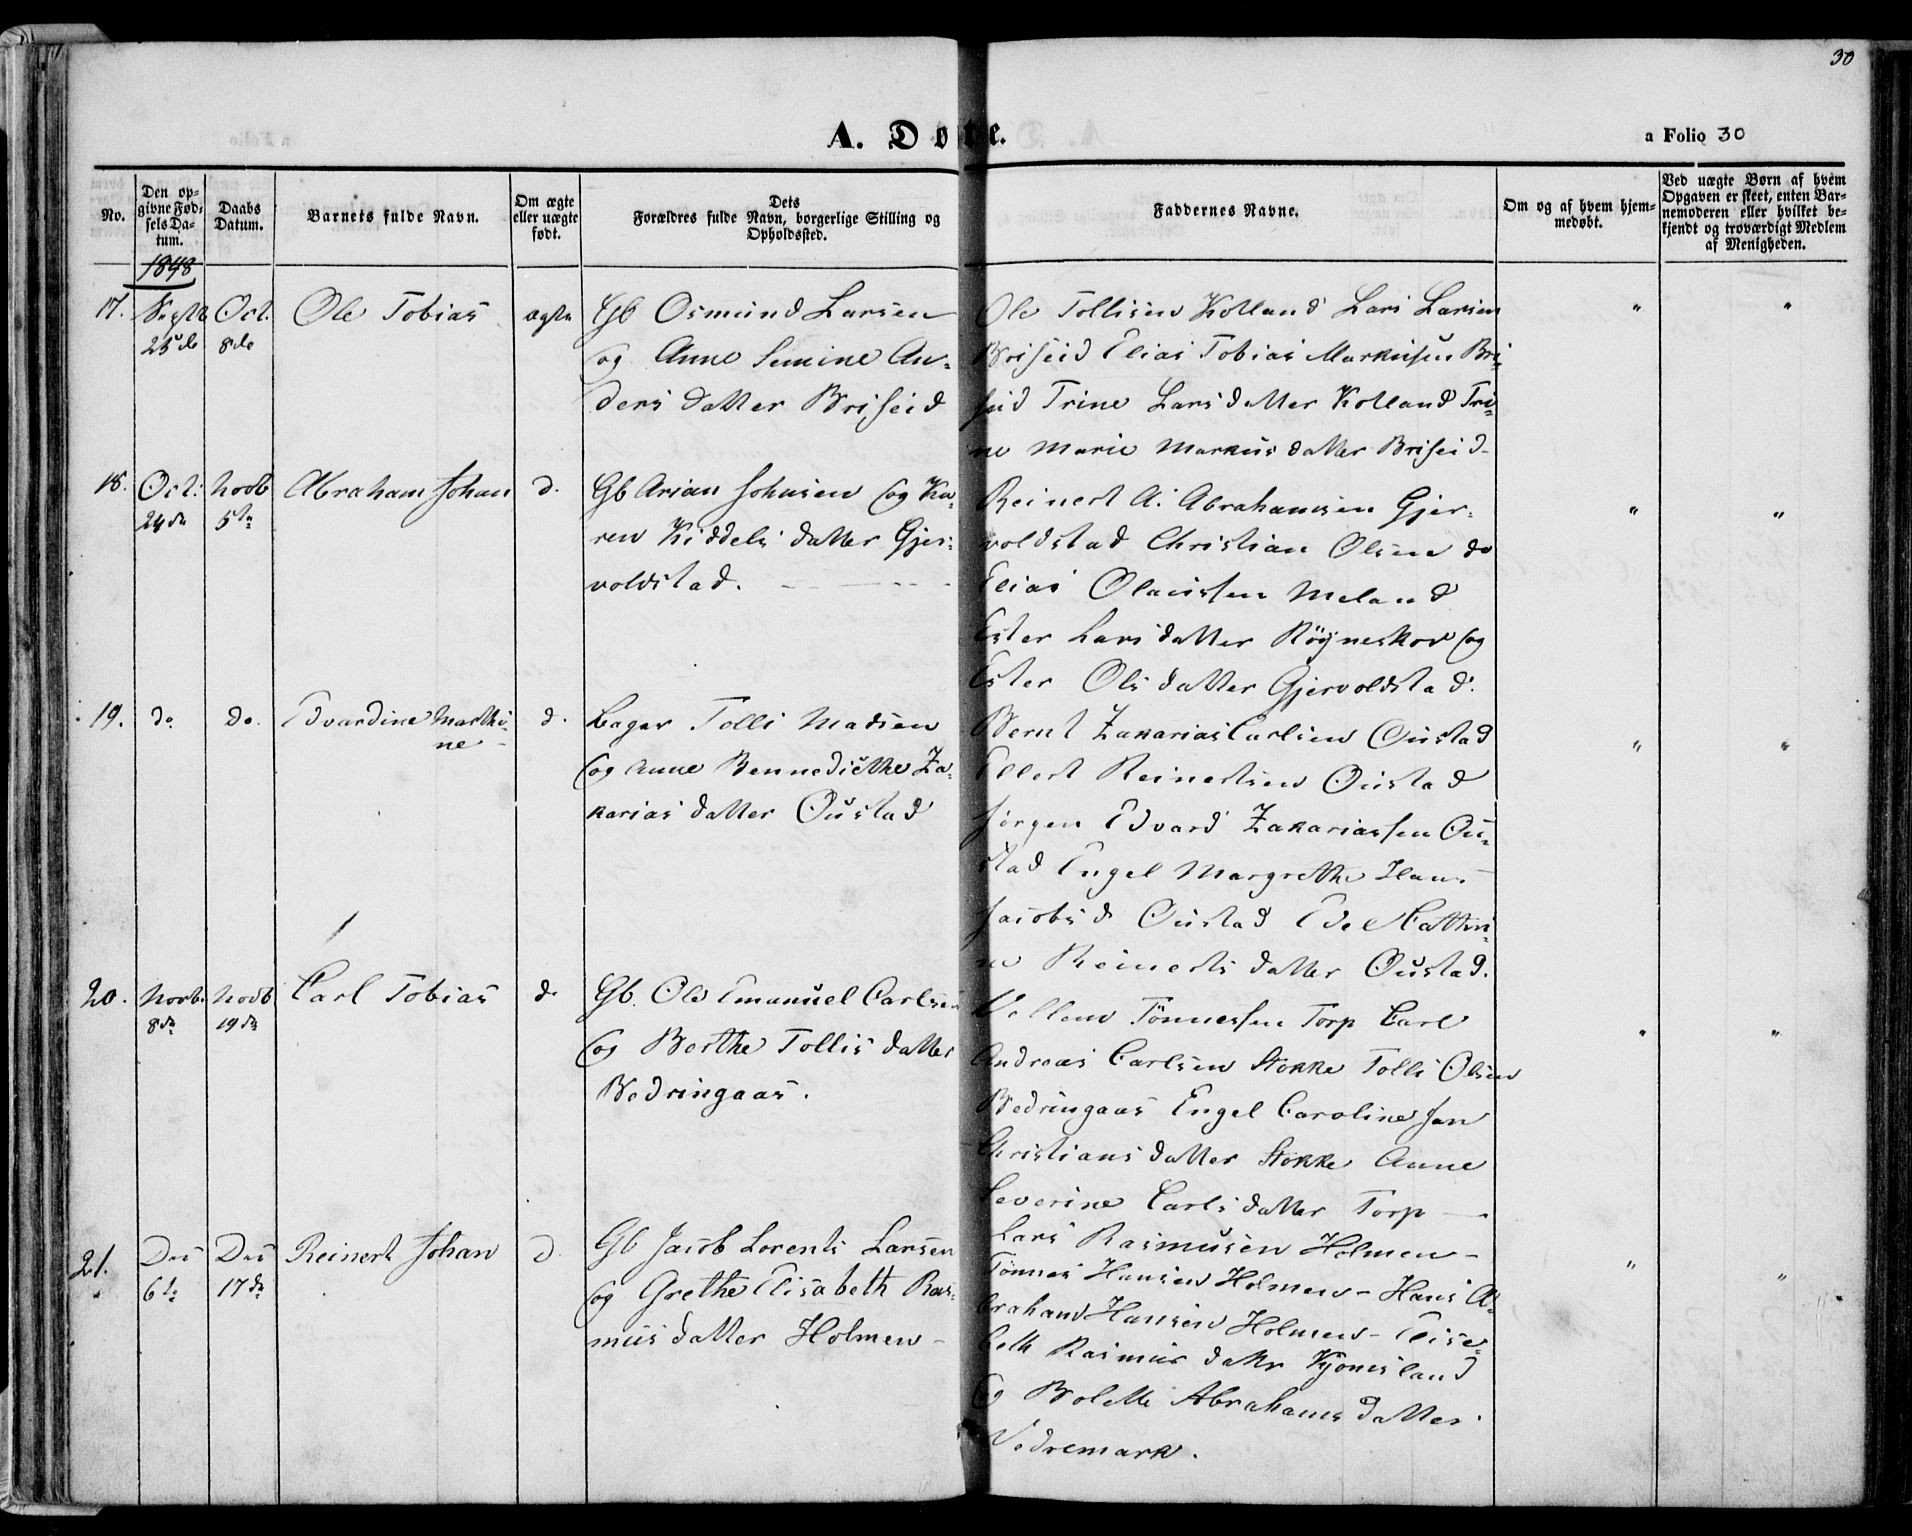 30
A. Døbte.
a Folio 30
No.
Den op-
givne Fød-
sels Da-
tum.
Daabs
Datum.
Barnets fulde Navn.
Om ægte
eller uægte
født.
Dets
Forældres fulde Navn, borgerlige Stilling og
Opholdssted.
Faddernes Navne.
Om og af hvem hjem-
medøbt.
Ved uægte Børn af hvem
Opgaven er skeet, enten Bar-
nemoderen eller hvilket be-
kjendt og troværdigt Medlem
af Menigheden.
1848
17. Septb 25de Oct. 8de Ole Tobias ægte
Gb Osmund Larsen
og Anne Semine An-
dersdatter Briseid
Ole Tollisen Kolland Lars Larsen
Briseid Elias Tobias Markusen Bri-
seid Trine Larsdatter Kolland Tri-
ne Marie Markusdatter Briseid
" "
18. Oct: 24de Novb 5te Abraham Johan d.
Gb Arian Johnsen og Ka-
ren Kiddelsdatter Gjer-
voldstad.
Reinert A. Abrahamsen Gjer-
voldstad Christian Olsen do
Elias Olaussen Meland
Ester Larsdatter Röyneskor og
Ester Olsdatter Gjervoldstad.
" "
19. do do. Edvardine Marthi-
ne d.
Loger Tolli Madsen
og Anne Bennedicthe Za-
kariasdatter Oustad
Bernt Zakarias Carlsen Oustad
Ellert Reinertsen Oustad
Jörgen Edvard Zakariassen Ou-
stad Engel Margrethe Hans
Jacobsd Oustad Edel Cathri-
ne Reinertsdatter Oustad.
" "
20. Novb. 8de Novb 19de Carl Tobias d.
Gb. Ole Emanuel Carlsen
og Berthe Tollisdatter
Bedringaas.
Vellem Tönnessen Torp Carl
Andreas Carlsen Stokke Tolli Olsen
Bedringaas Engel Caroline Jan
Christiansdatter Stokke Anne
Severine Carlsdatter Torp
" "
21. Des 6te Des 17de Reinert Johan d
Gb Jacob Lorents Larsen
og Grethe Elisabeth Ras-
musdatter Holmen
Lars Rasmusen Holmen -
Tönnes Hansen Holmen - Hans A-
braham Hansen Holmen - Elisa-
beth Rasmusdatter Kjönisland
og Bolette Abrahamsdatter
Vedremark.
" "